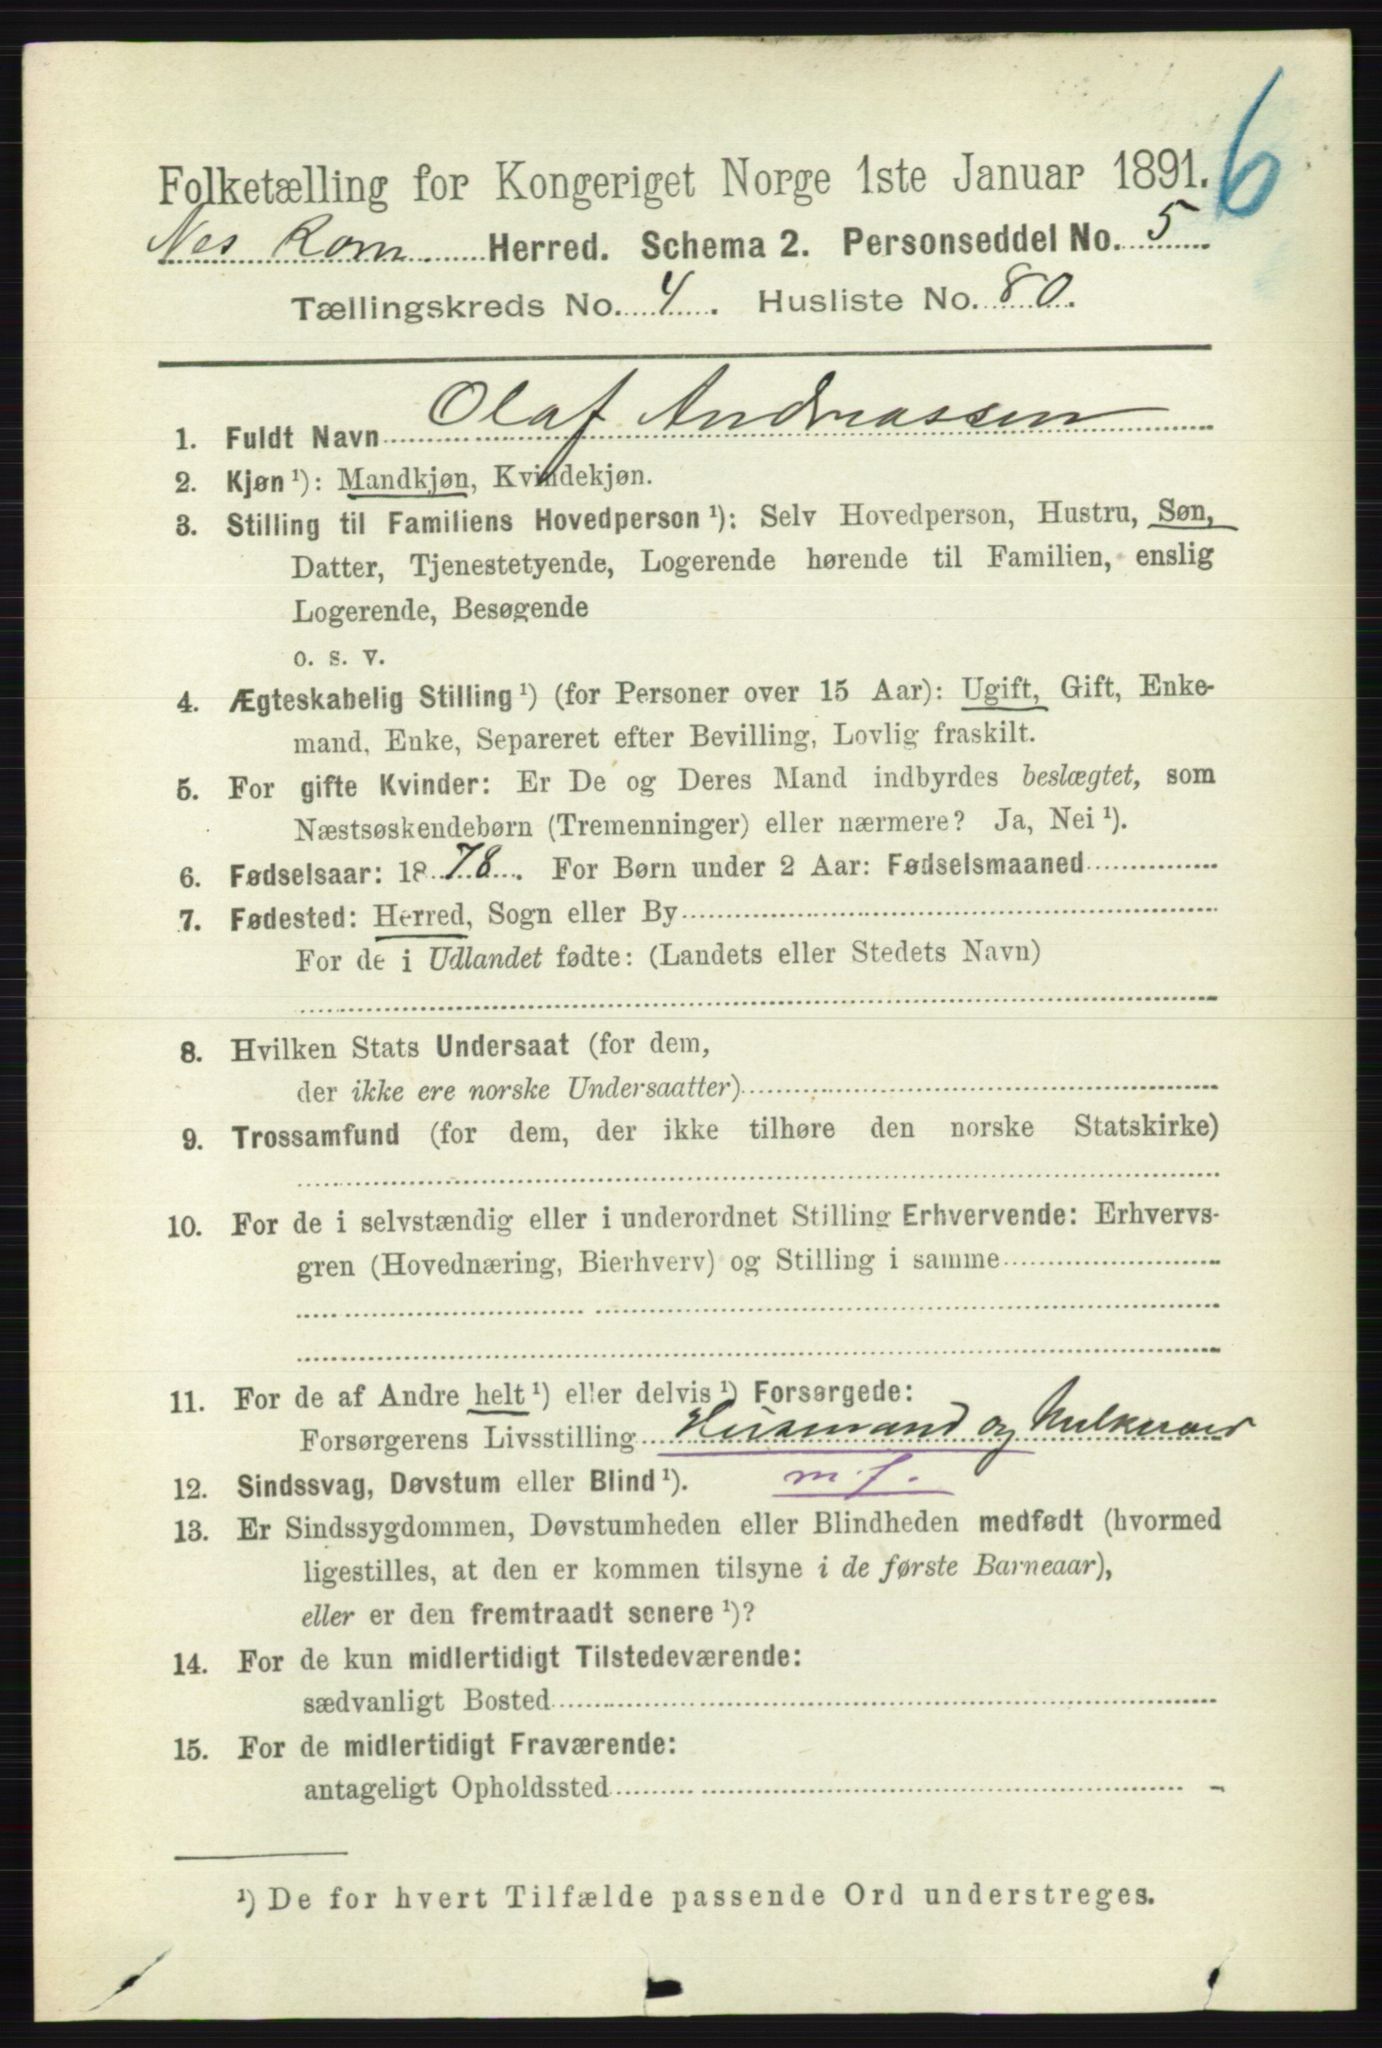 6
Folketælling for Kongeriget Norge 1ste Januar 1891.
Nes Rom. Herred. Schema 2. Personseddel No. 5
Tællingskreds No. 4. Husliste No. 80.
1. Fuldt Navn Olaf Andreassen
2. Kjøn ¹): Mandkjøn, Kvindekjøn.
3. Stilling til Familiens Hovedperson ¹): Selv Hovedperson, Hustru, Søn,
Datter, Tjenestetyende, Logerende hørende til Familien, enslig
Logerende, Besøgende
o. s. v.
4. Ægteskabelig Stilling ¹) (for Personer over 15 Aar): Ugift, Gift, Enke-
mand, Enke, Separeret efter Bevilling, Lovlig fraskilt.
5. For gifte Kvinder: Er De og Deres Mand indbyrdes beslægtet, som
Næstsøskendebørn (Tremenninger) eller nærmere? Ja, Nei ¹).
6. Fødselsaar: 1878. For Børn under 2 Aar: Fødselsmaaned
7. Fødested: Herred, Sogn eller By
For de i Udlandet fødte: (Landets eller Stedets Navn)
8. Hvilken Stats Undersaat (for dem,
der ikke ere norske Undersaatter)
9. Trossamfund (for dem, der ikke tilhøre den norske Statskirke)
10. For de i selvstændig eller i underordnet Stilling Erhvervende: Erhvervs-
gren (Hovednæring, Bierhverv) og Stilling i samme
11. For de af Andre helt ¹) eller delvis ¹) Forsørgede:
Forsørgerens Livsstilling Husmand og
12. Sindssvag, Døvstum eller Blind ¹). m. f.
13. Er Sindssygdommen, Døvstumheden eller Blindheden medfødt (hvormed
ligestilles, at den er kommen tilsyne i de første Barneaar),
eller er den fremtraadt senere ¹)?
14. For de kun midlertidigt Tilstedeværende:
sædvanligt Bosted
15. For de midlertidigt Fraværende:
antageligt Opholdssted
¹) De for hvert Tilfælde passende Ord understreges.